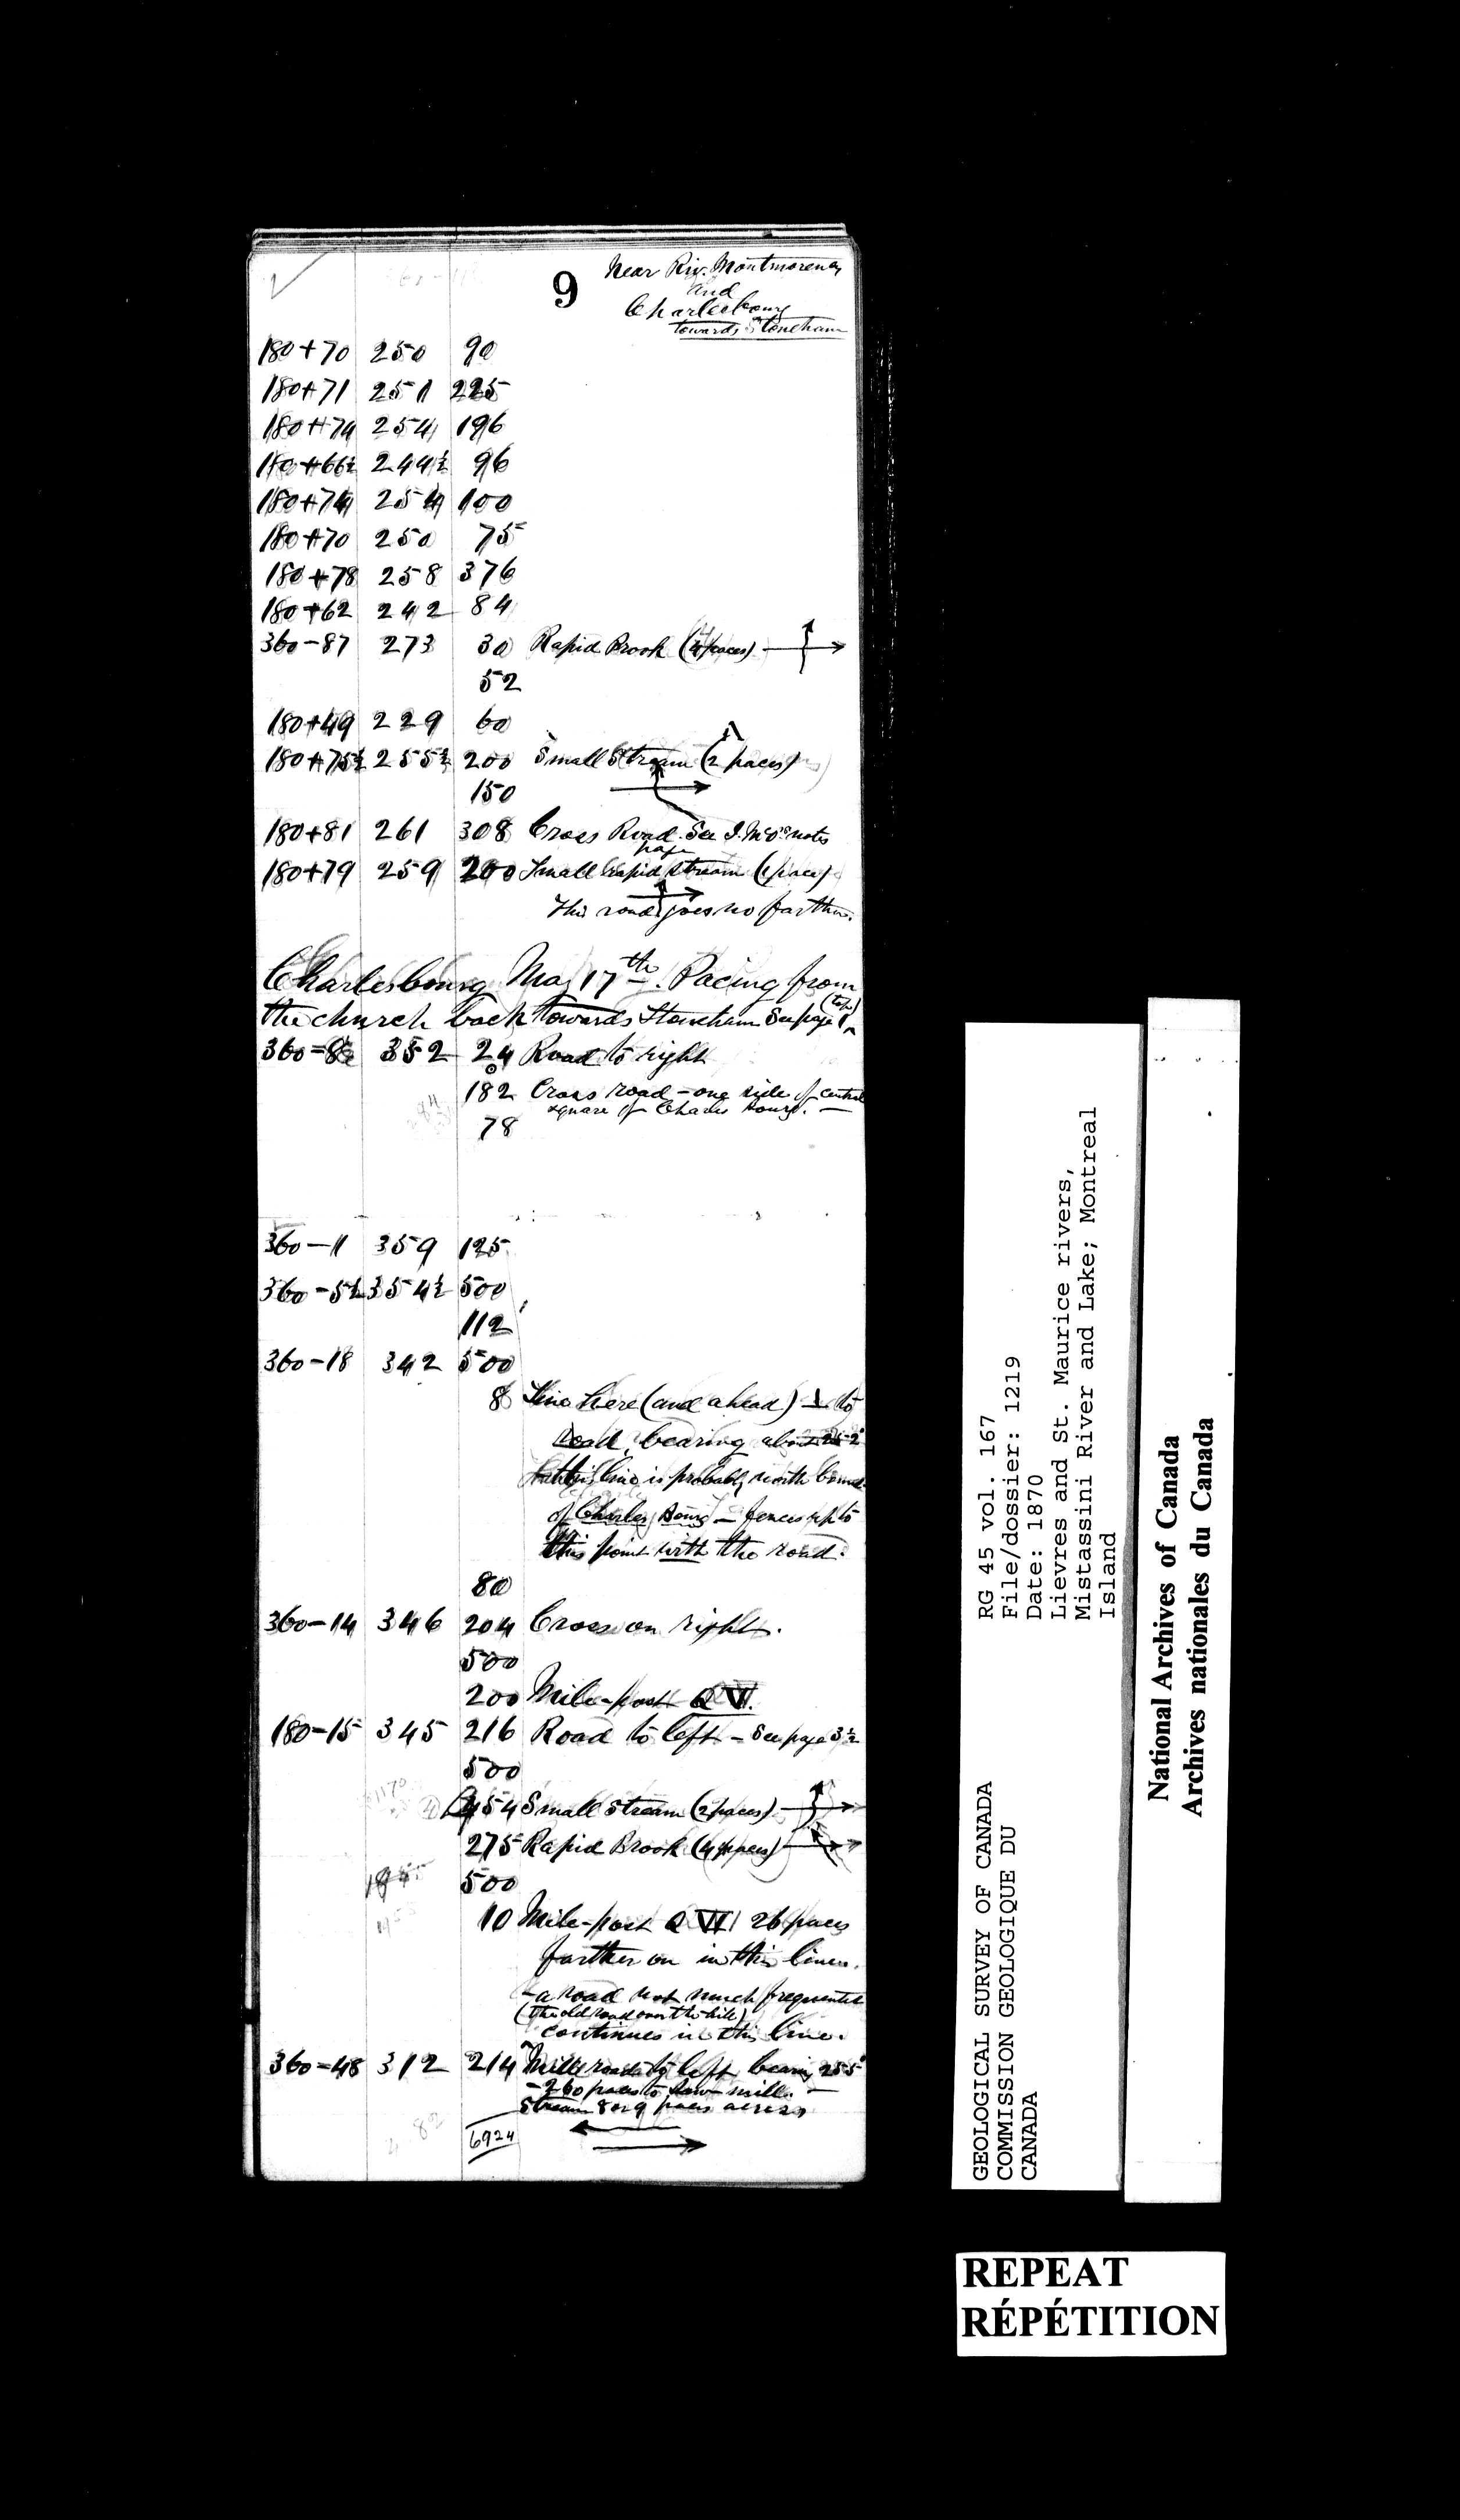 9
Near Riv. Montmorency
and
Charlesbourg
towards Stoneham
180+70 250 90
180+71 251 225
180+74 254 196
180+66½ 244½ 96
180+74 254 100
180+70 250 75
180+78 258 376
180+62 242 84
360-87 273 30 Rapid Brook (4 paces)
52
180+49 229 60
180+75½ 255½ 200 Small Stream (2 paces)
150
180+81 261 308 Cross Road. See notes
page
180+79 259 200 Small rapid stream (1 pace)
This road goes no farther.
Charlesbourg May 17th. Pacing from
the church back towards Stoneham See page 1 (top)
360-8 352 24 Road to right
182 Cross road - one side of central
square of Charlesbourg.
78
360-11 359 125
360-5½ 354½ 500
112
360-18 342 500
8 Line here (and ahead) ⊥ to
road, bearing about
this line is probably north bound.
of Charlesbourg - fences up to
this point with the road.
80
360-14 346 204 Cross on right.
500
200 Mile-post Q VI.
180-15 345 216 Road to left - See page 3½
500
454 Small Stream (2 paces)
275 Rapid Brook (4 paces)
500
10 Mile-post Q VII 26 paces
farther on in this line.
- a road not much frequented
(the old road over the hill)
continues in this line.
360-48 312 214 Mill road to left bearing 255°
- 260 paces to saw-mill.
Stream 8 or 9 paces across
6924
GEOLOGICAL SURVEY OF CANADA
COMMISSION GEOLOGIQUE DU
CANADA
RG 45 vol. 167
File/dossier: 1219
Date: 1870
Lievres and St. Maurice rivers,
Mistassini River and Lake; Montreal
Island
National Archives of Canada
Archives nationales du Canada
REPEAT
RÉPÉTITION